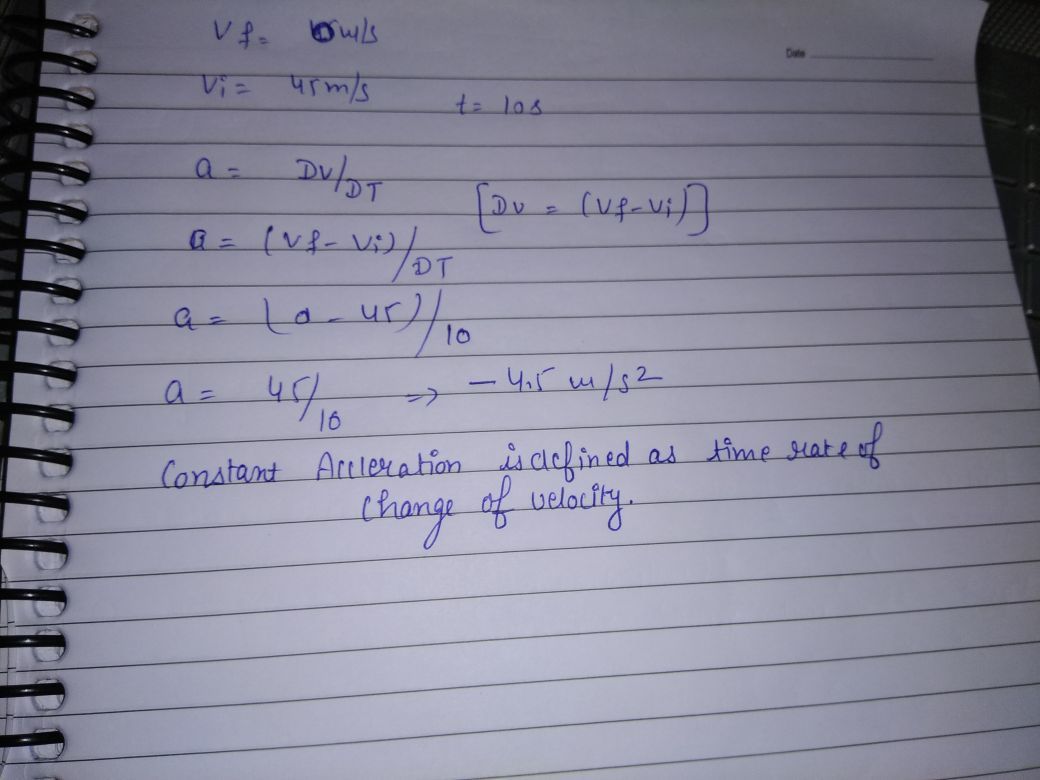 Vf = 0 m/s
Date
Vi = 45 m/s
t = 10s
a = DV/DT
[DV = (Vf - Vi)]
a = (Vf - Vi)/DT
a = (0 - 45)/10
a = 45/10 => - 4.5 m/s2
Constant Accleration is defined as time rate of
change of velocity.